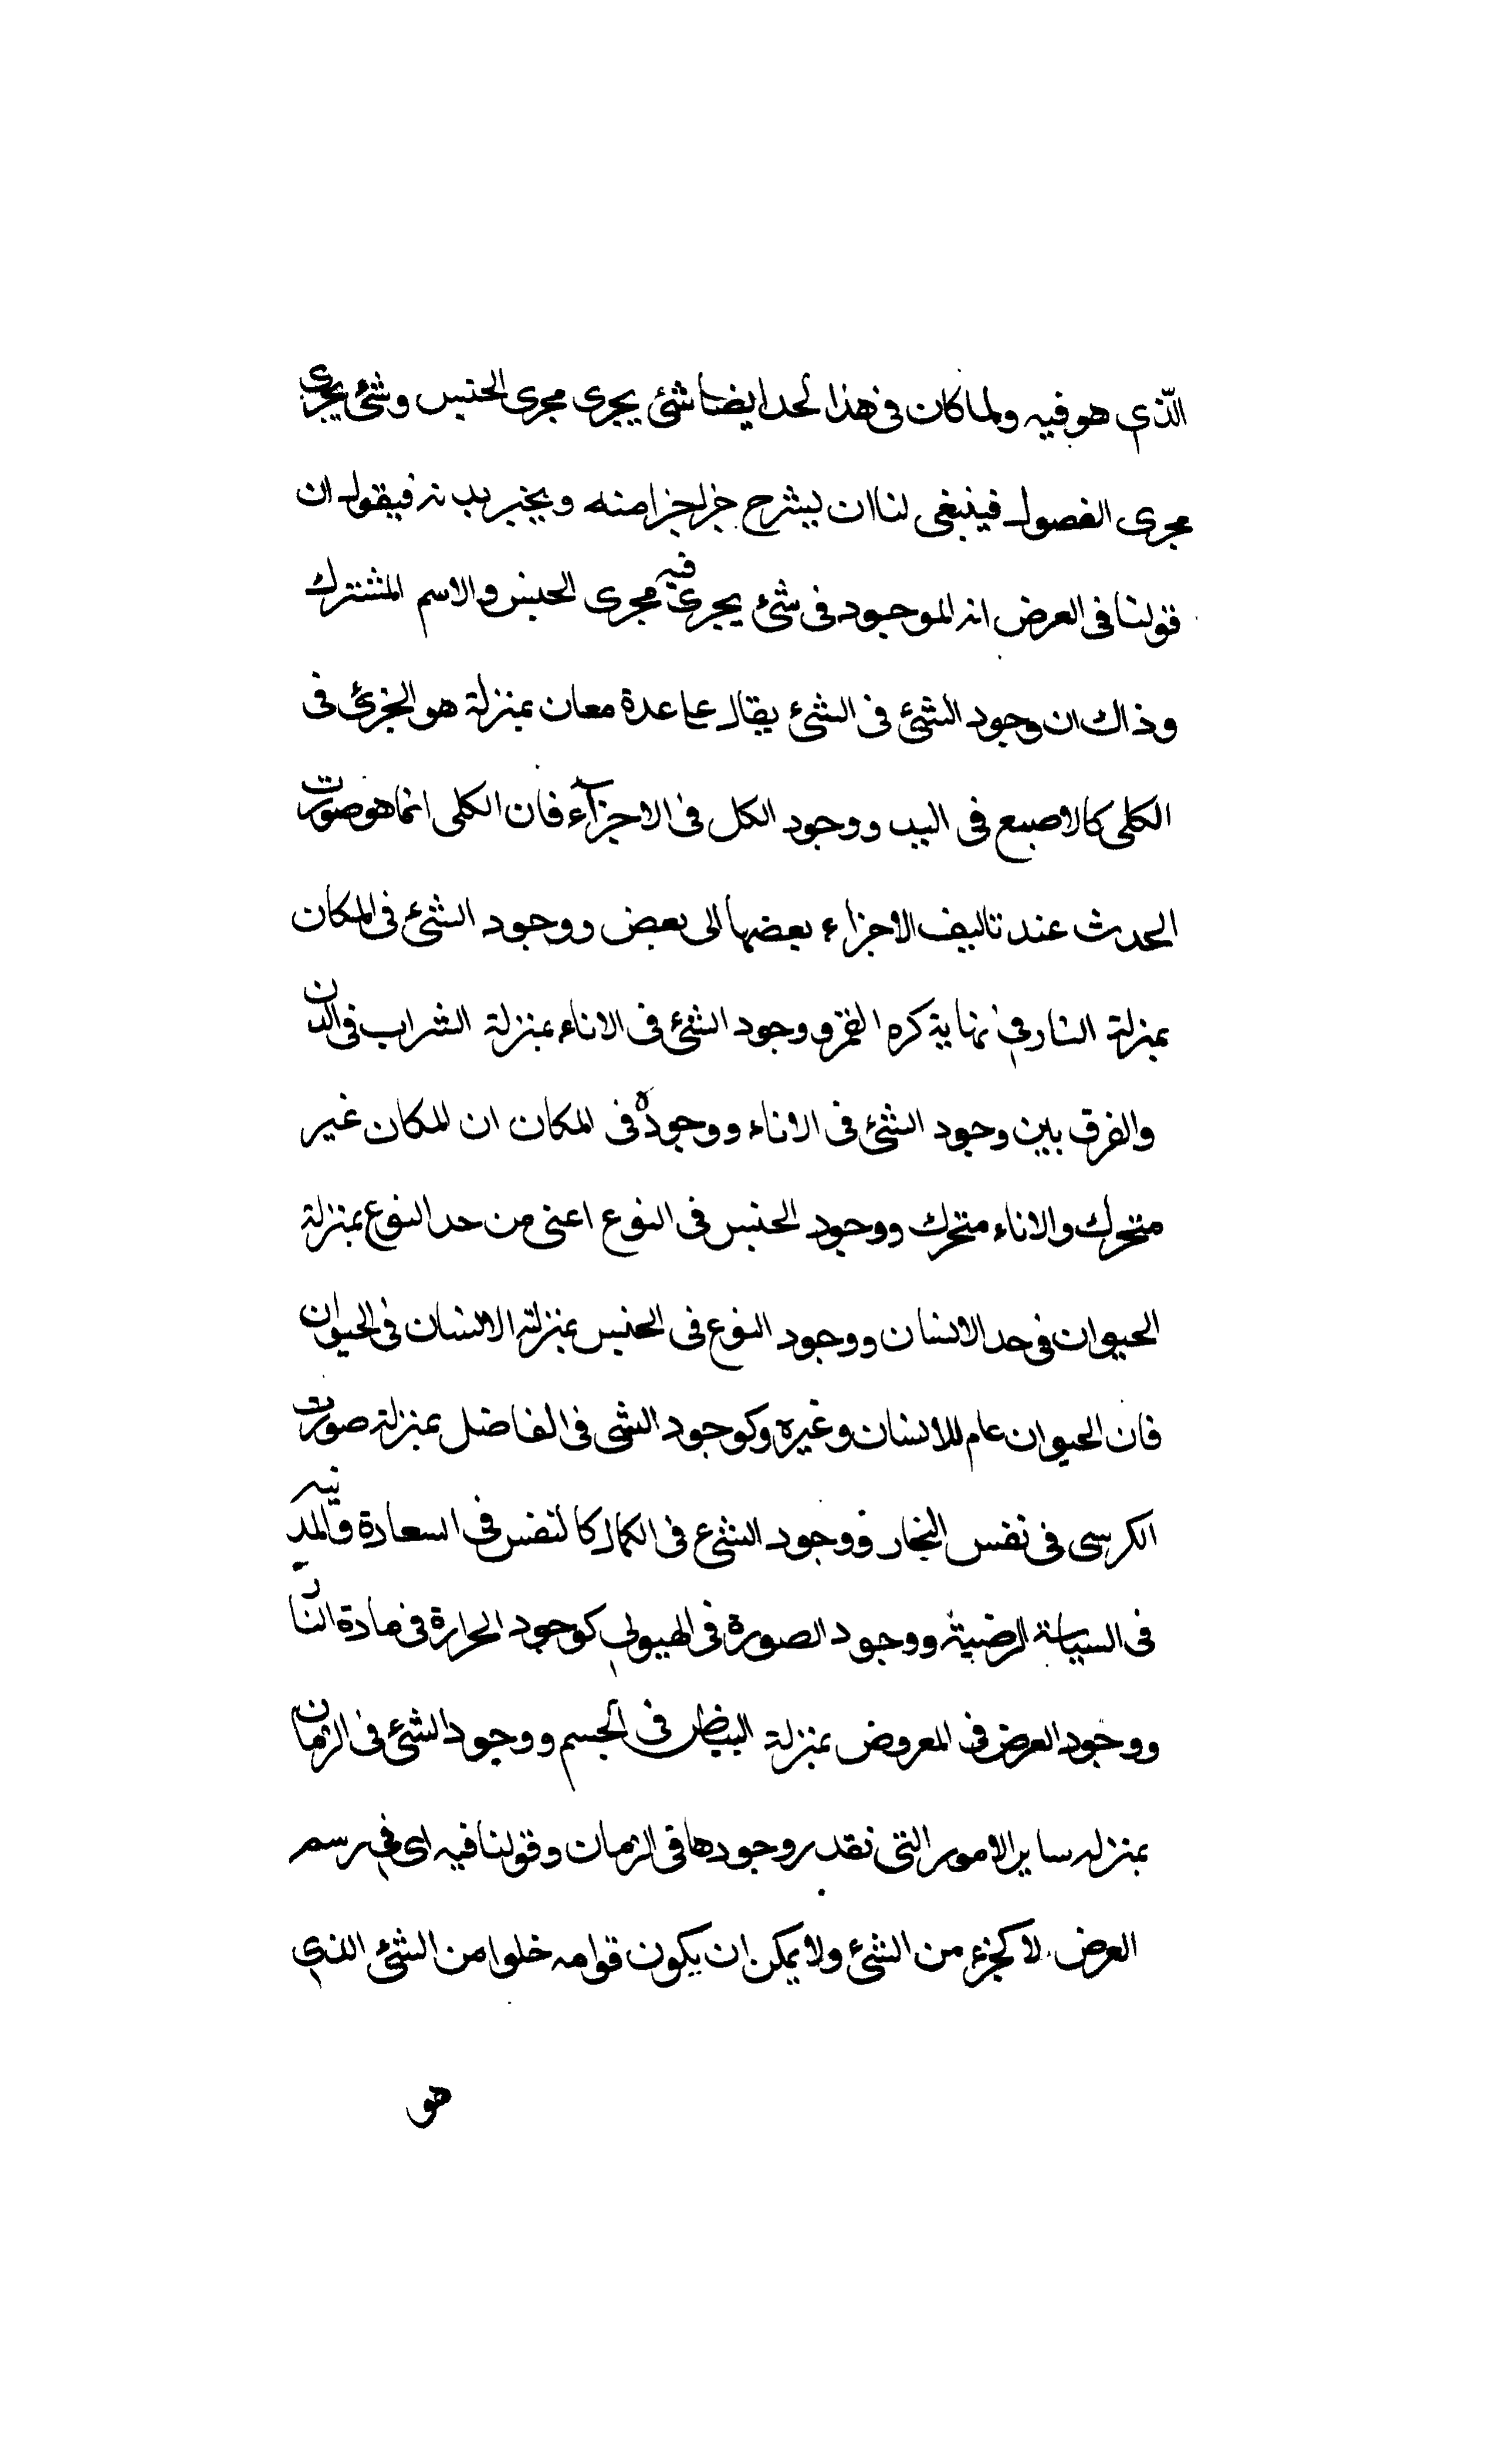 الّذي هو فيه ولما كان في هذا لحد ايضا شئ يجرى مجرى الجنس وشئ يجرى
مجرى الفصول فينبغى لنا ان يشرح جزا جزا منه ويخبر به فيقول ان
قولنا في العرض انه الموجود في شئ يجرى فيه مجرى الجنس والاسم المشترك
وذاك ان وجود الشئ في الشئ يقال على عدة معان بمنزلة هو الجزئ في
الكلى كالاصبع في اليد ووجود الكل في الاجزآء فان الكلى انما هو صورت
الحدث عند تاليف الاجزاء بعضها الى بعض ووجود الشئ في المكان
بمنزلة النار في نهاية كره القمر ووجود الشئ في الاناء بمنزلة الشراب في الدن
والفرق بين وجود الشئ في الاناء ووجوده في المكان ان المكان غير
متحرك والاناء متحرك ووجود الجنس في النوع اعنى من حد النوع بمنزلة
الحيوان في حد الانسان ووجود النوع في الجنس بمنزلة الانسان في الحيوان
فان الحيوان عام للانسان وغيره وكوجود الشى في الفاضل بمنزلة صورت
الكرسى في نفس النجار ووجود الشئ في الكمال كالنفس في السعادة والمدنيه
في السياسة الرضية ووجود الصورة في الهيولي كوجود الحرارة في مادة النار
ووجود العرض في المعروض بمنزلة البياض في الجسم ووجود الشئ في الزمان
بمنزله ساير الامور التى نقدر وجودها في الزمان وقولنا فيه اى في رسم
العرض لا كجزء من الشئ ولا يمكن ان يكون قوامه خلوا من الشئ الذي
هو